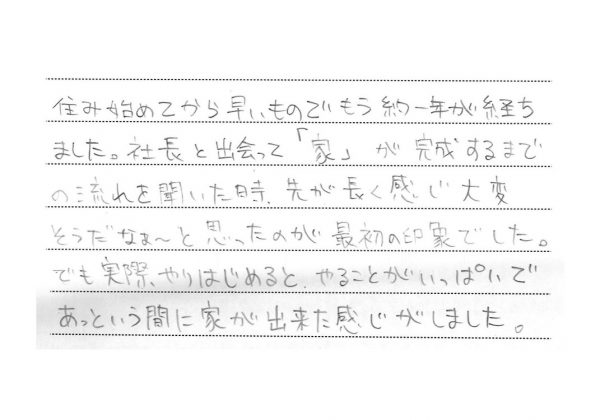 住み始めてから早いものでもう約一年が経ち
ました。社長と出会って「家」が完成するまで
の流れを聞いた時、先が長く感じ大変
そうだなぁ〜と思ったのが最初の印象でした。
でも実際、やりはじめると、やることがいっぱいで
あっという間に家が出来た感じがしました。